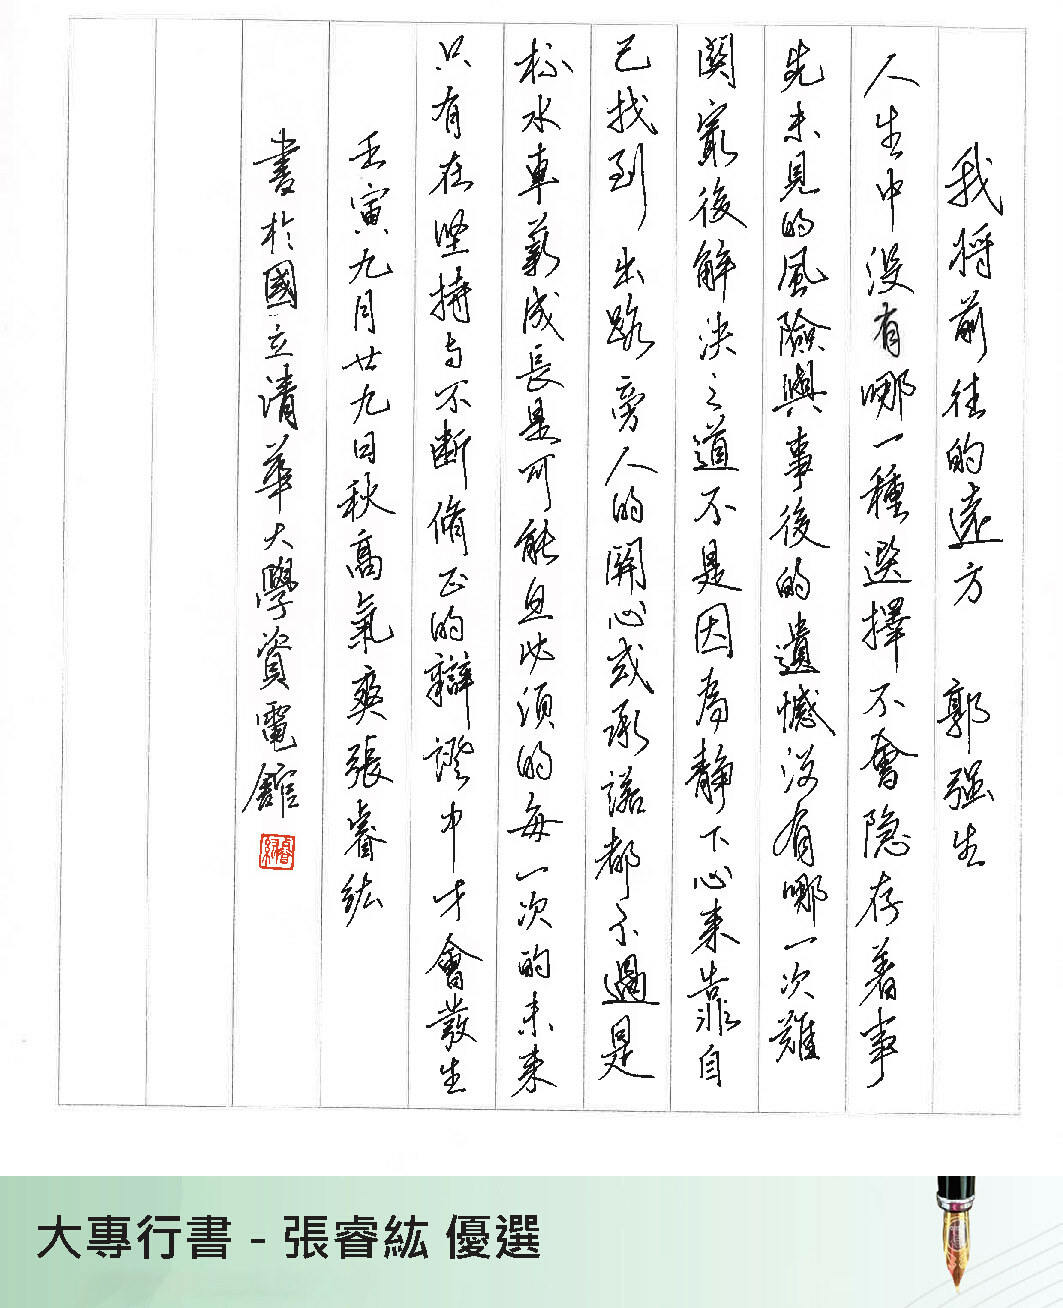 我將前往的遠方 郭強生
人生中沒有哪一種選擇不會隱存着事
先未見的風險與事後的遺憾沒有哪一次難
關最後解決之道不是因為靜下心來靠自
己找到出路旁人的關心或承諾都不過是
杯水車薪成長是可能且必須的每一次的未來
只有在堅持与不斷脩正的辯證中才會發生
壬寅九月廿九日秋高氣爽張睿紘
書於國立清華大學資電館
睿紘
大專行書 - 張睿紘 優選